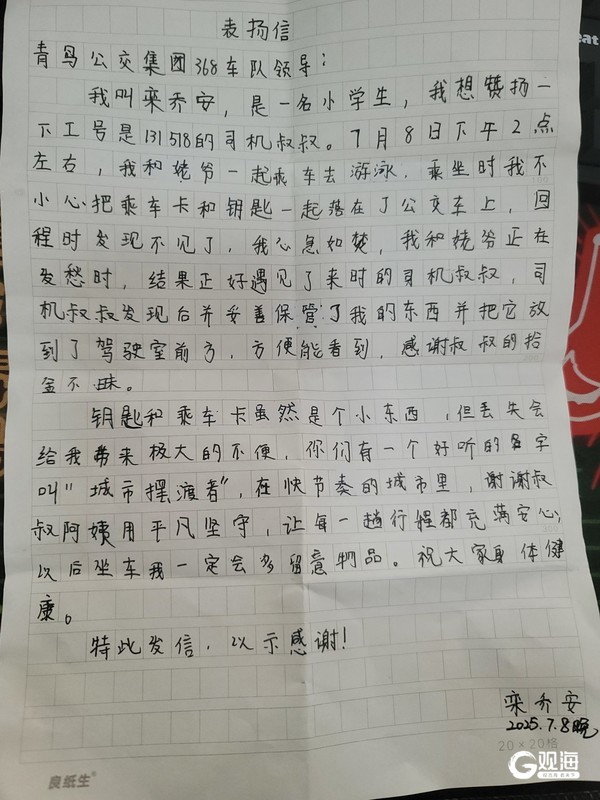 表扬信
青鸟公交集团368车队领导：
我叫栾乔安，是一名小学生，我想赞扬一
下工号是131518的司机叔叔。7月8日下午2点
左右，我和姥爷一起乘车去游泳．乘坐时我不
小心把乘车卡和钥匙一起落在了公交车上，回
程时发现不见了，我心急如焚，我和姥爷正在
发愁时，结果正好遇见了来时的司机叔叔，司
机叔叔发现后并妥善保管了我的东西并把它放
到了驾驶室前方，方便能看到，感谢叔叔的拾
金不昧。
钥匙和乘车卡虽然是个小东西，但丢失会
给我带来极大的不便，你们有一个好听的名字
叫"城市摆渡者"，在快节奏的城市里，谢谢叔
叔阿姨用平凡坚守，让每一趟行程都充满安心，
以后坐车我一定会多留意物品。祝大家身体健
康。
特此发信，以示感谢！
栾乔安
2025.7.8晚
20×20格
良纸生
观海
eat